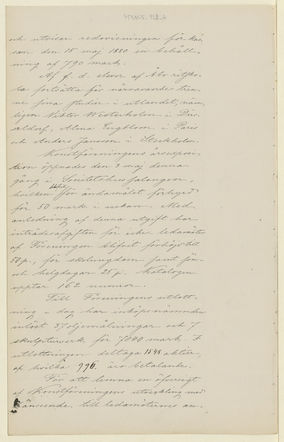 och utvisar redovisningen för kas-
san den 18 maj 1880 en behåll-
ning af 790 mark.
Af f. d. elever af Åbo ritsko-
la fortsätta för närvarande tre-
ne sina studier i utlandet, näm-
ligen Viktor Westerholm i Düs-
seldorf, Alma Engblom i Paris
och Anders Jansson i Stockholm.
Konstföreningens årsexposi-
tion öppnades den 3 maj denna
gång i Societetshussalongen,
hvilken för ändamålet förhyrdes
för 50 mark i veckan. Med
anledning af denna utgift har
inträdesafgiften för icke ledamöter
af Föreningen blifvit förhöjd till
50 p., för skolungdom samt sön-
och helgdagar 25 p. Katalogen
upptar 162 numror.
Till Föreningens utlott-
ning i dag har inköpsnämnden
inlöst 37 oljemålningar och 7
skulpturverk för 7000 mark. I
utlottningen deltaga 1548 aktier,
af hvilka 996 äro betalande.
För att lemna en öfversigt
af Konstföreningens utveckling med
hänseende till ledamöternas an-